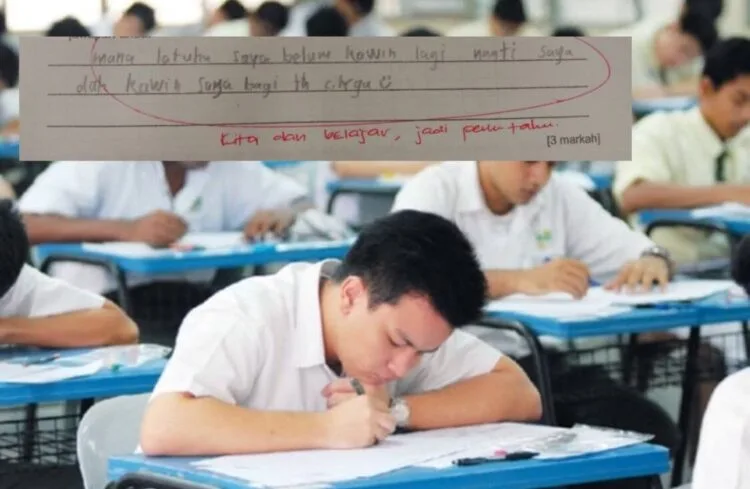 mana lah tuha saya belum kawin lagi nanti saya
dah kawin saya bagi th cikgu
Kita dan belajar, jadi perlu tahu.
[3 markah]